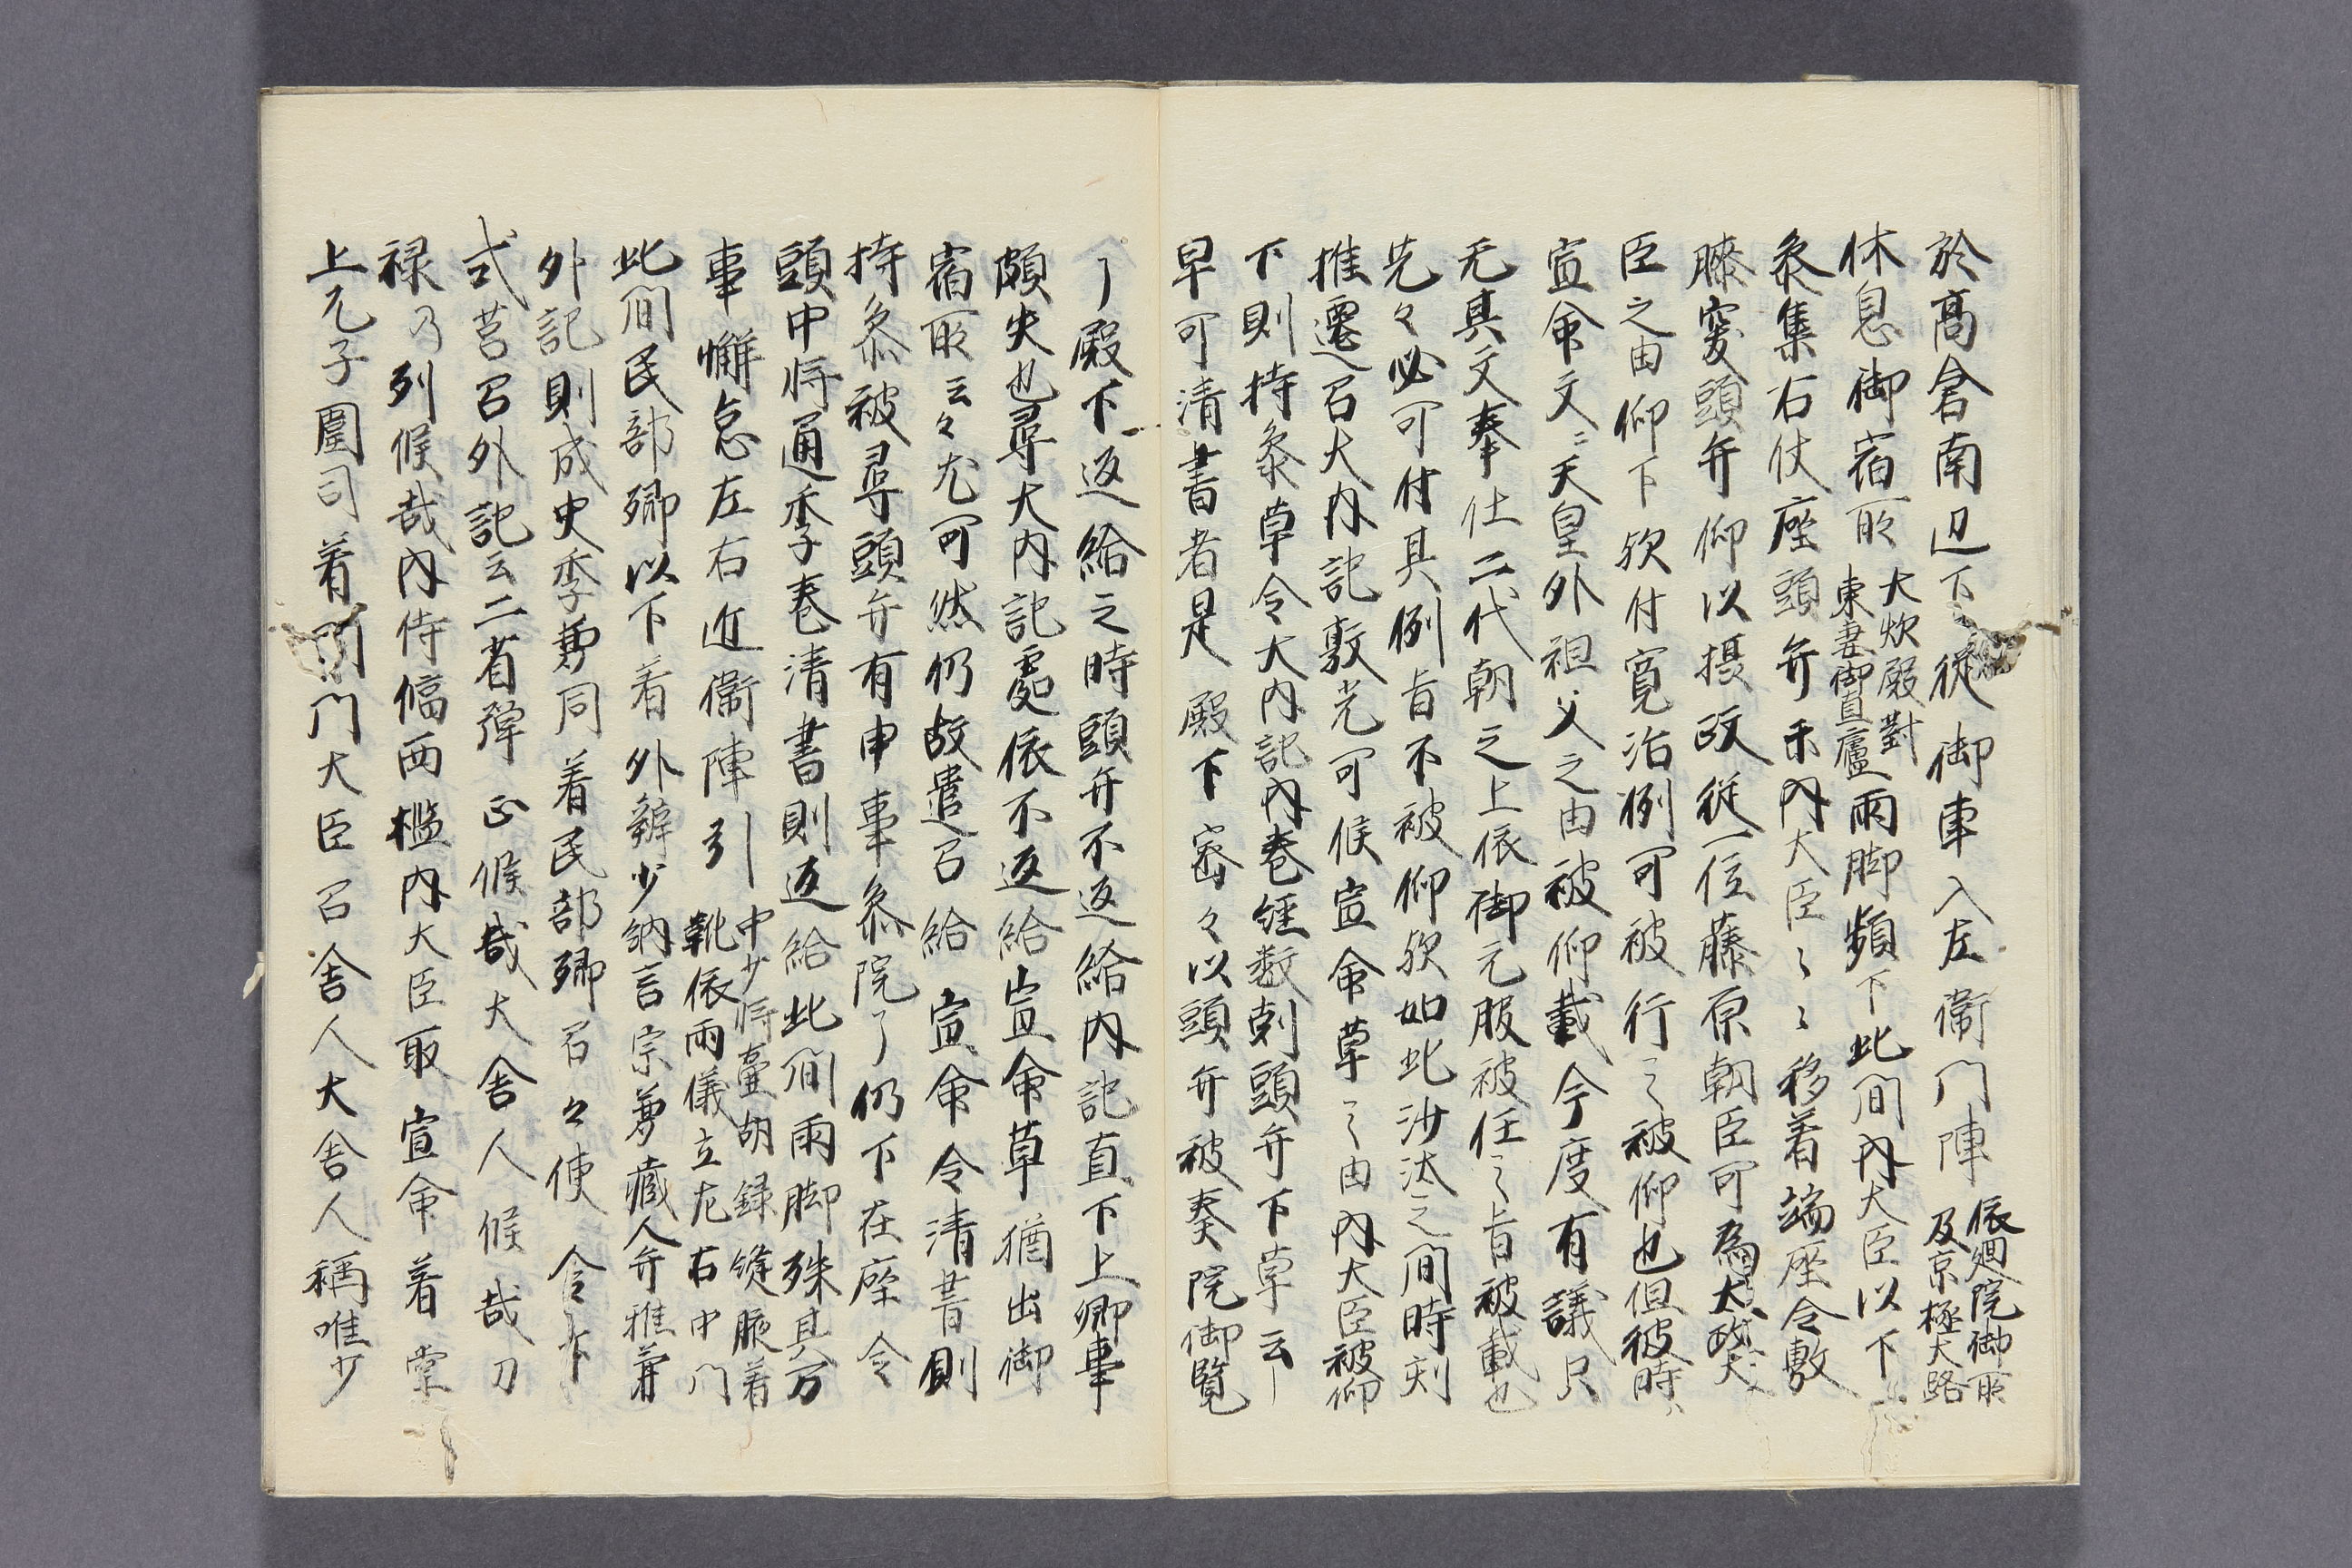 於高倉南辺下従御車入左衛門陣依廻院御所
及京極大路
休息御宿所大炊殿對
東妻御直廬雨脚頻下此間内大臣以下
参集右仗座頭弁示内大臣〻〻移着端座令敷
膝突頭弁仰以摂政従一位藤原朝臣可為太政大
臣之由仰下欤付寛治例可被行之被仰也但彼時
宣命文ニ天皇外祖父之由被仰載今度有議只
无其文奉仕二代朝之上依御元服被任之旨被載也
先々必可付其例旨不被仰欤如此沙汰之間時刻
推遷召大内記敦光可候宣命草之由内大臣被仰
下則持参草令大内記内巻経数刻頭弁下草云
早可清書者是殿下密々以頭弁被奏院御覧
了殿下返給之時頭弁不返給内記直下上卿事
頗失也尋大内記處依不返給宣命草猶出御
宿所云々尤可然仍故遣召給宣命令清書則
持参被尋頭弁有申事参院了仍下在座令
頭中将通季巻清書則返給此間雨脚殊甚万
事懈怠左右近衛陣引中少将壷胡録縫腋着
靴依雨儀立左右中門
此間民部卿以下着外辨少納言宗兼蔵人弁雅兼
外記則成史季兼同着民部卿召々使
式筥召外記云二省弾正候哉大舎人候哉刀
禄乃列候哉内侍臨西檻内大臣取宣命着
上了子圍司着門大臣召舎人大舎人稱唯少